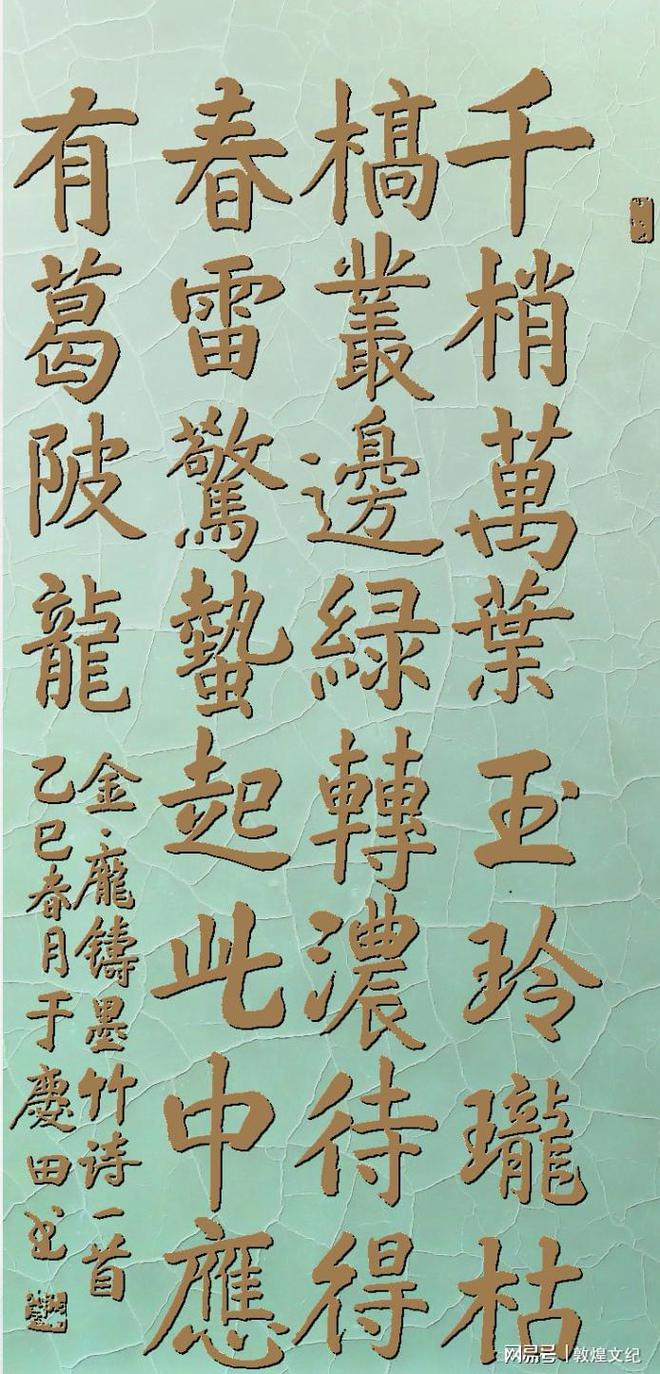 千梢萬葉玉玲瓏枯
槁叢邊綠轉濃待得
春雷驚蟄起此中應
有葛陂龍
金·龐鑄墨竹诗一首
乙巳春月于慶田书
网易号 | 敦煌文纪